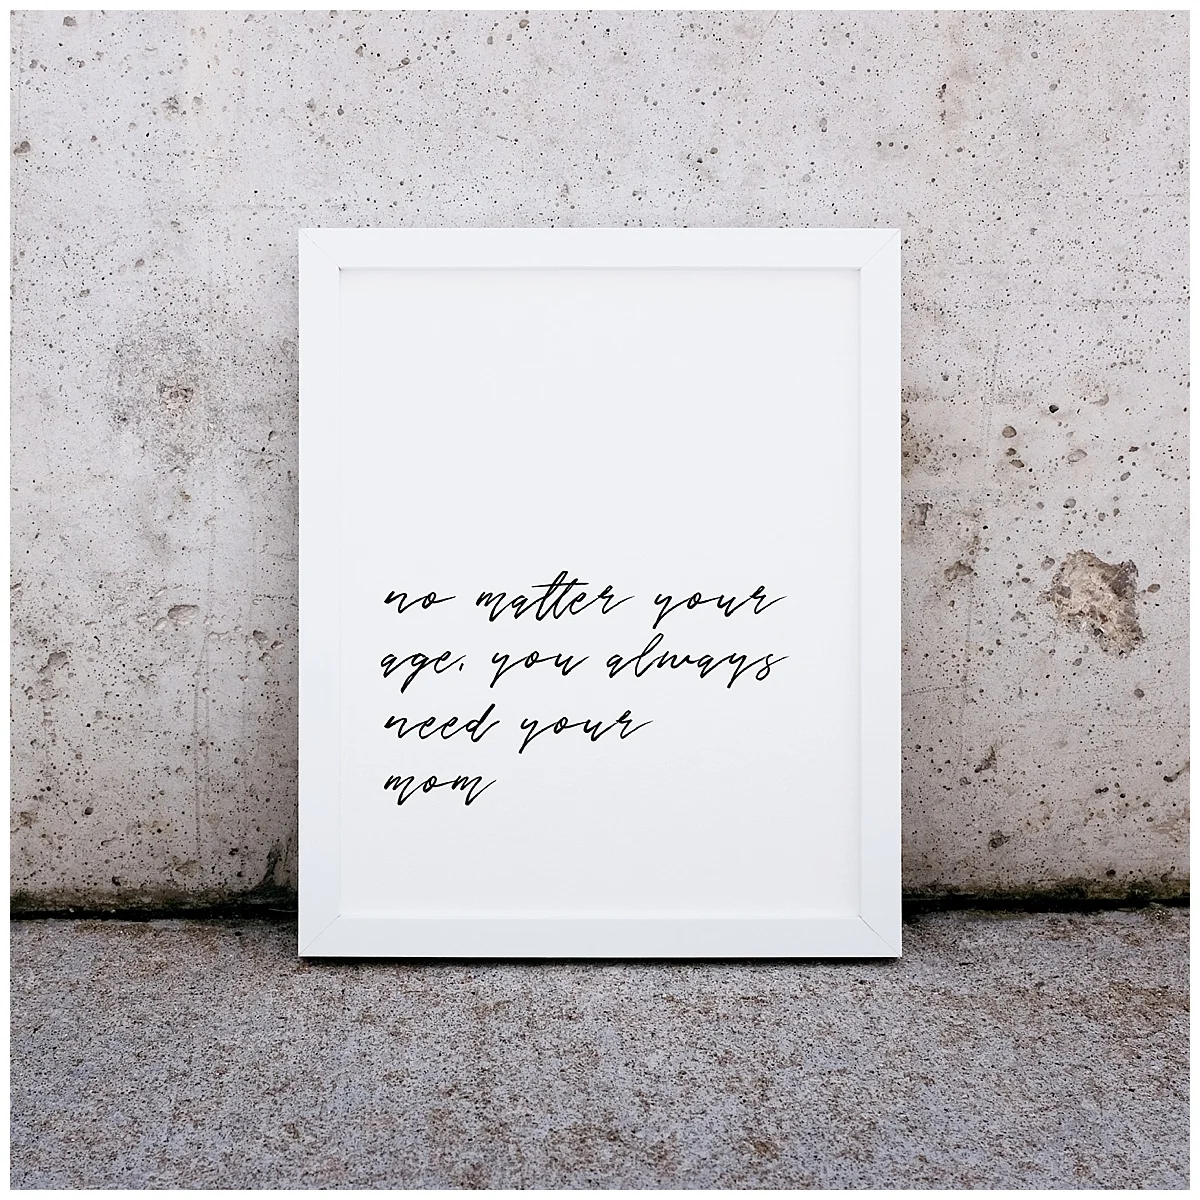 no matter your
age, you always
need your
mom